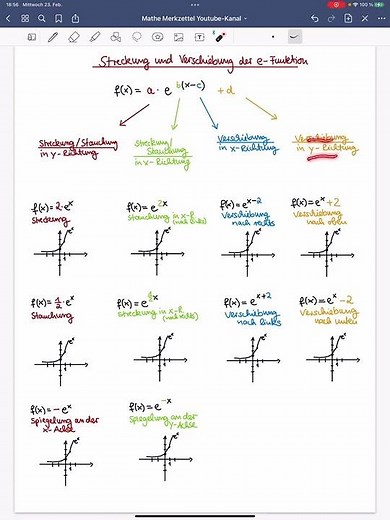 18:56 Mittwoch 23. Feb.
Mathe Merkzettel Youtube-Kanal
Streckung und Verschiebung der e-Funktion
f(x) = a · e^b(x-c) + d
Streckung/Stauchung
in y-Richtung
Streckung/
Stauchung
in x-Richtung
Verschiebung
in x-Richtung
Verschiebung
in y-Richtung
f(x) = 2·e^x
Streckung
e^x
f(x) = e^2x
Stauchung in x-R
(nach links)
e^x
f(x) = e^x-2
Verschiebung
nach rechts
e^x
f(x) = e^x +2
Verschiebung
nach oben
e^x
f(x) = 1/2 · e^x
Stauchung
e^x
f(x) = e^1/2x
Streckung in x-R
(nach rechts)
e^x
f(x) = e^x+2
Verschiebung
nach links
e^x
f(x) = e^x -2
Verschiebung
nach unten
e^x
f(x) = -e^x
Spiegelung an der
x-Achse
e^x
f(x) = e^-x
Spiegelung an der
y-Achse
e^x